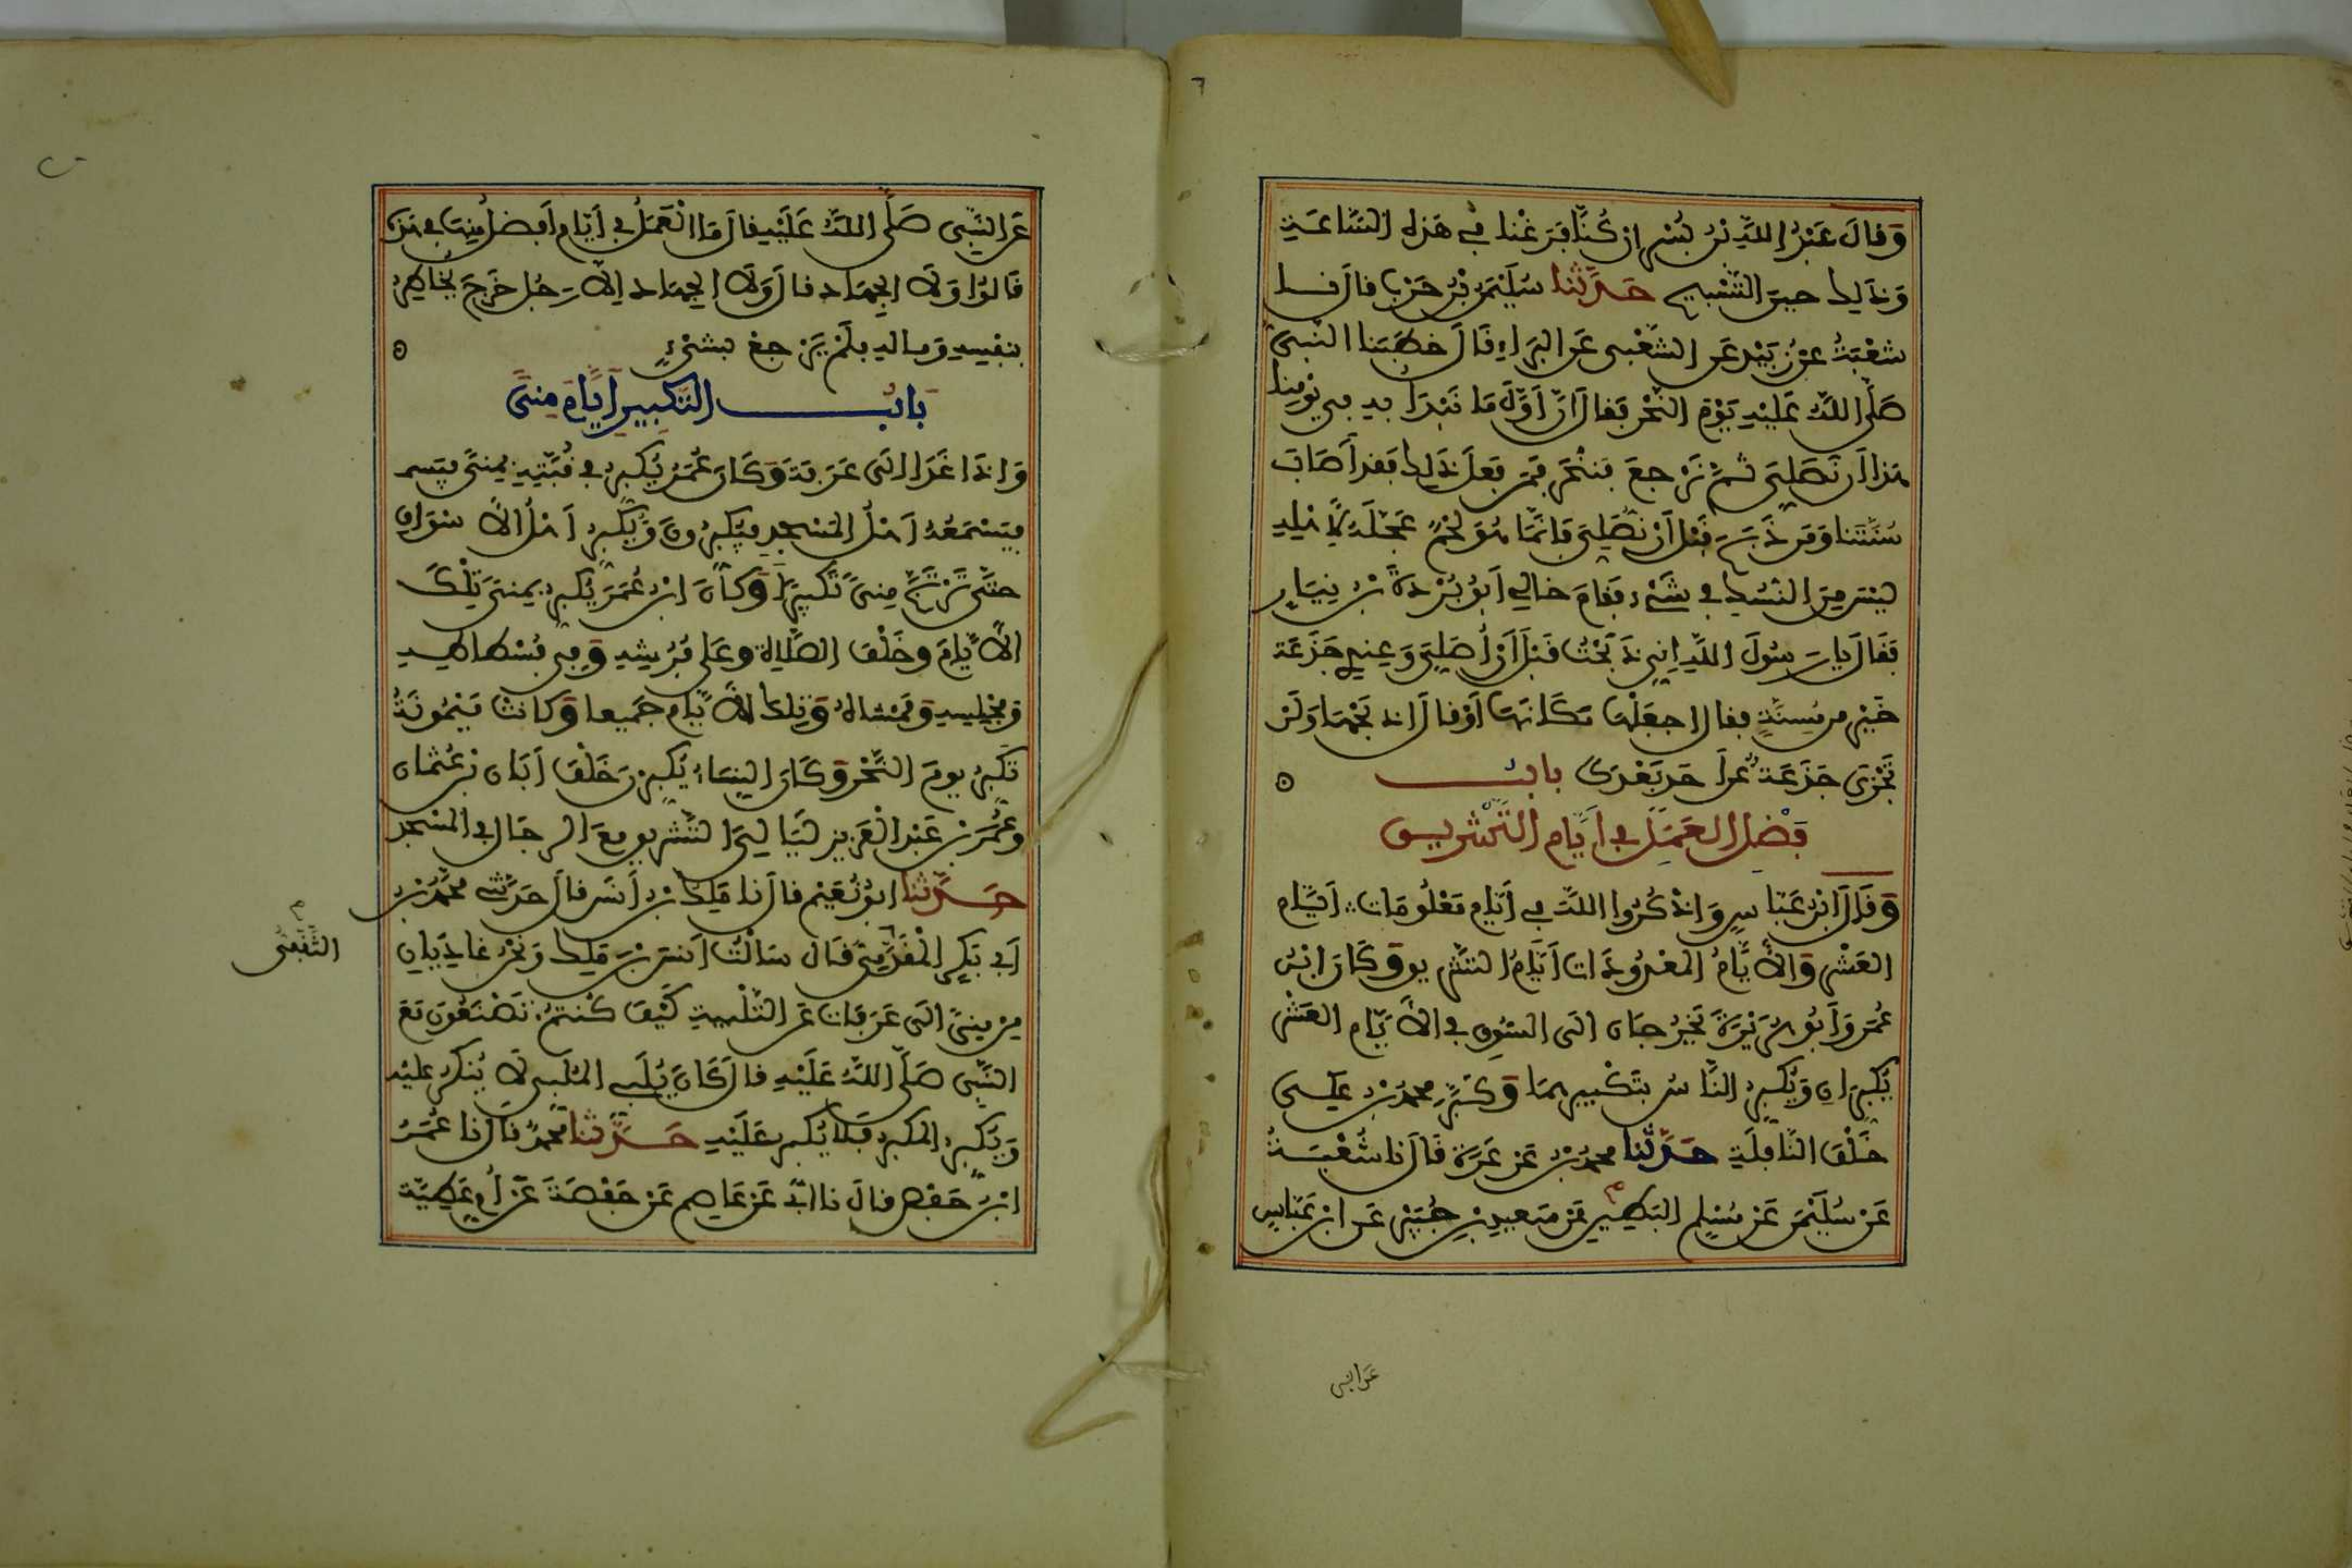 وَقَالَ عَبْدُ اللَّهِ بْنُ بُسْرٍ إِنْ كُنَّا فَرَغْنَا فِي هَذِهِ السَّاعَةِ
وَذَلِكَ حِينَ التَّسْبِيحِ حَدَّثَنَا سُلَيْمَنُ بْنُ حَرْبٍ قَالَ نا
شُعْبَةُ عَنْ زُبَيْدٍ عَنِ الشَّعْبِي عَنِ الْبَرَاءِ قَالَ خَطَبَنَا النَّبِيُّ
صَلَّى اللَّهُ عَلَيْهِ يَوْمَ النَّحْرِ فَقَالَ إِنَّ أَوَّلَ مَا نَبْدَأُ بِهِ فِي يَوْمِنَا
هَذَا أَن نُصَلِّيَ ثُمَّ نَرْجِعَ فَنَنْحَرَ فَمَن فَعَلَ ذَلِكَ فَقَد أَصَابَ
سُنَّتَنَا وَمَن ذَبَحَ قَبْلَ أَنْ نُصَلِّيَ فَإِنَّمَا هُوَ لَحْمٌ عَجَّلَهُ لِأَهْلِهِ
لَيْسَ مِنَ النُّسُكِ فِي شَيْءٍ فَقَامَ خَالِي أَبُو بُرْدَةَ بْنُ نِيَارٍ
فَقَالَ يَا رَسُولَ اللَّهِ إِنِّي ذَبَحْتُ قَبْلَ أَنْ أُصَلِّيَ وَعِندِي جَذَعَة
خَيْرٌ مِن مُسِنَّةٍ فقال اجْعَلْهَا مَكَانَهَا أَوْ قَالَ اذبَحْهَا وَلَنْ
تَجْزِيَ جَذَعَةٌ عَن أَحَدٍ بَعْدَكَ بَابُ
فَضْلِ الْعَمَلِ فِي أَيَّامِ التَّشْرِيقِ
وَقَالَ ابْنُ عَبَّاسٍ وَاذْكُرُوا اللَّهَ فِي أَيَّامٍ مَعْلُومَاتٍ أَيَّام
العَشْرِ وَالْأَيَّامُ الْمَعْدُودَاتِ أَيَّامُ التَّشْرِيقِ وَكَانَ ابْنُ
عُمَرَ وَأَبُو هُرَيْرَةَ يَخْرُجَانِ إِلَى السُّوقِ فِي الْأَيَّامِ الْعَشْرِ
يُكَبِّرَانِ وَيُكَبِّرُ النَّاسُ بِتَكْبِيرِهِمَا وَكَبَّرَ مُحَمَّدُ بْنُ عَلِي
خَلْفَ النَّافِلَةِ حَدَّثَنَا مُحَمَّدُ بْنُ عَرْعَرَةَ قَالَ نا شُعْبَةُ
عَنْ سُلَيْمَنَ عَنْ مُسْلِمٍ الْبَطِينِ عَنْ سَعِيدِ بْنِ جُبَيْرٍ عَنِ ابْنِ عَبَّاسٍ
عَنِ النبي
عَنِ النَّبِي صَلَّى اللَّهُ عَلَيْهِ قَالَ مَا الْعَمَلُ فِي أَيَّامٍ أَفْضَلُ مِنْهَا فِي هَذِه
قَالُوا وَلَا الْجِهَادُ قَالَ وَلَا الْجِهَادُ إِلَّا رَجُلٌ خَرَجَ يُخَاطِرُ
بِنَفْسِهِ وَمَالِهِ فَلَمْ يَرْجِعْ بِشَيْءٍ
بَابُ التَّكْبِيرِ أَيَّامَ مِنىً
وَإِذَا غَدَا إِلَى عَرَفَةَ وَكَانَ عُمَرُ يُكَبِّرُ فِي قُبَّتِهِ بِمِنىً
فَيَسْمَعُهُ أَهْلُ الْمَسْجِدِ فَيُكَبِّرُونَ وَيُكَبِّرُ أَهْلُ الْأَسْوَاقِ
حَتَّى تَرْتَجَّ مِنىً تَكْبِيرًا وَكَانَ ابْنُ عُمَرَ يُكَبِّرُ بِمِنىً تِلْكَ
الْأَيَّامَ وَخَلْفَ الصَّلَاةِ وَعَلَى فُرُشِهِ وَفِي فُسْطَاطِهِ
وَمَجْلِسِهِ وَمَمْشَاهُ وَتِلْكَ الْأَيَّامَ جَمِيعًا وَكَانَتْ مَيْمُونَةُ
تُكَبِّرُ يَوْمَ النَّحْرِ وَكَانَ النِّسَاءُ يُكَبِّرْنَ خَلْفَ أَبَانَ بْنِ عُثْمَانَ
وَعُمَرَ بْنِ عَبْدِ الْعَزِيزِ لَيَالِيَ التَّشْرِيقِ مَعَ الرِّجَالِ فِي الْمَسْجِدِ
حَدَّثَنَا أَبُو نُعَيْمٍ قَالَ نا مَلِكُ بْنُ أَنَسٍ قَالَ حَدَّثَنِي مُحَمَّدُ بْنُ
أَبِي بَكْرٍ قَالَ سَأَلْتُ أَنَسَ بْنَ مَلِكٍ وَنَحْنُ غَادِيَانِ
الثَّقَفِيُّ
مِنْ مِنىً إِلَى عَرَفَاتٍ عَنِ التَّلْبِيَةِ كَيْفَ كُنْتُمْ تَصْنَعُونَ مَعَ
النَّبِي صَلَّى اللَّهُ عَلَيْهِ قَالَ كَانَ يُلَبِّي الْمُلَبِّي لَا يُنْكَرُ عَلَيْهِ
وَيُكَبِّرُ الْمُكَبِّرُ فَلَا يُنْكَرُ عَلَيْهِ حَدَّثَنَا مُحَمَّدٌ قَالَ نا عُمَرُ
ابْنُ حَفْصٍ قَالَ نا أَبِي عَنْ عَاصِمٍ عَنْ حَفْصَةَ عَنْ أُمِّ عَطِيَّةَ